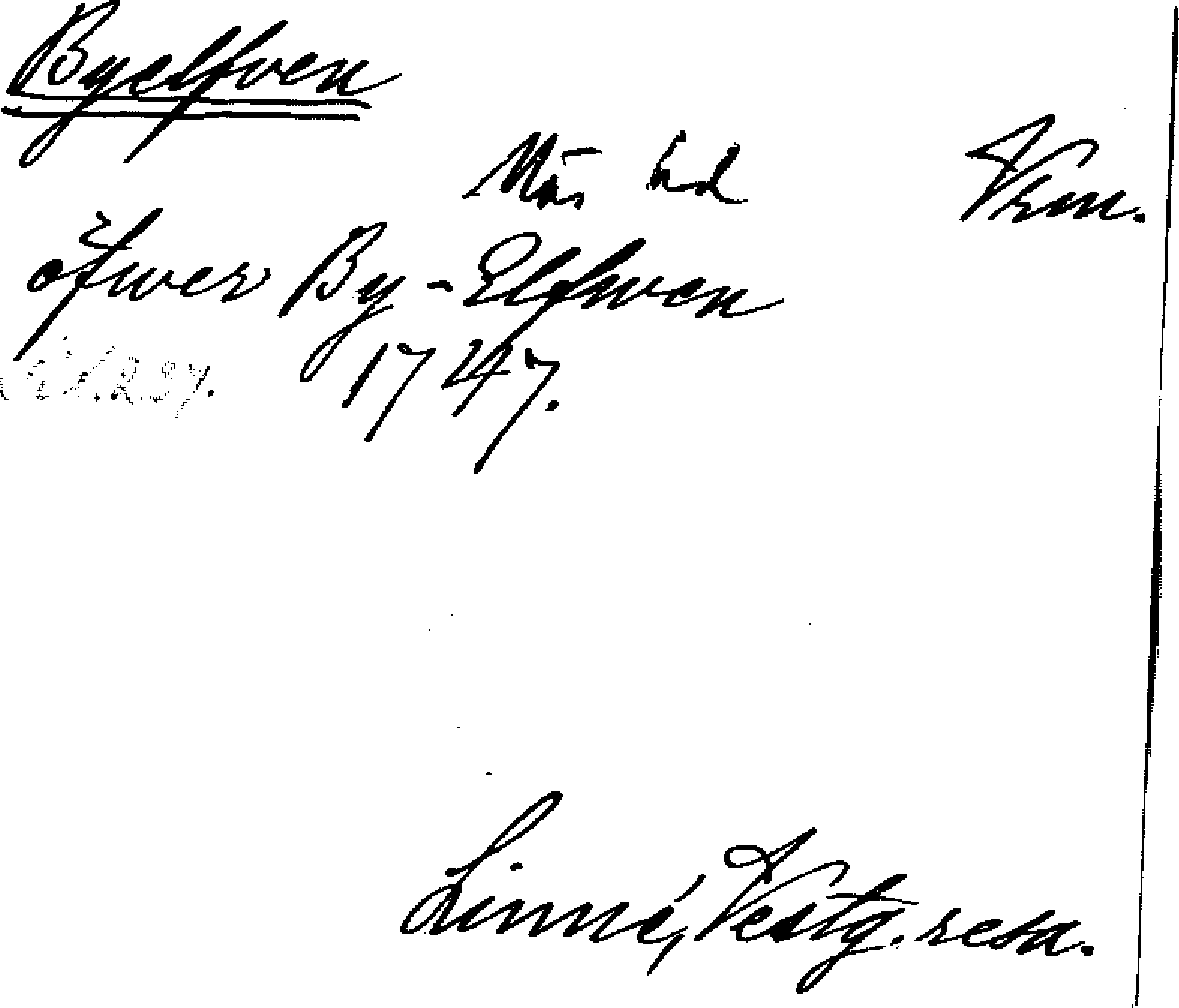 Byelfven
Näs hd Vrm.
öfwer By-Elfwen
1747.
Linné, Vestg. resa.